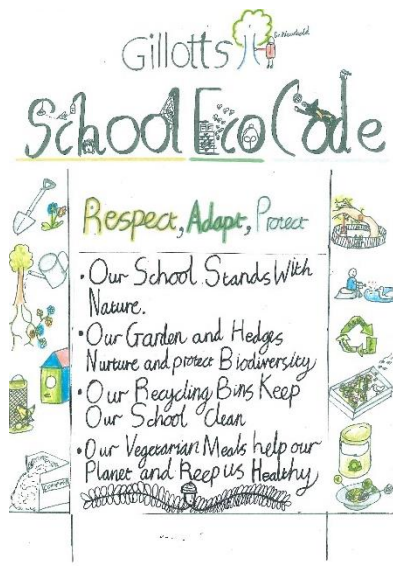 Gillotts
School Eco Code
Respect, Adapt, Protect
• Our School Stands With
Nature.
• Our Garden and Hedges
Nurture and protect Biodiversity
• Our Recycling Bins Keep
Our School Clean
• Our Vegetarian Meals help our
Planet and Keep us Healthy